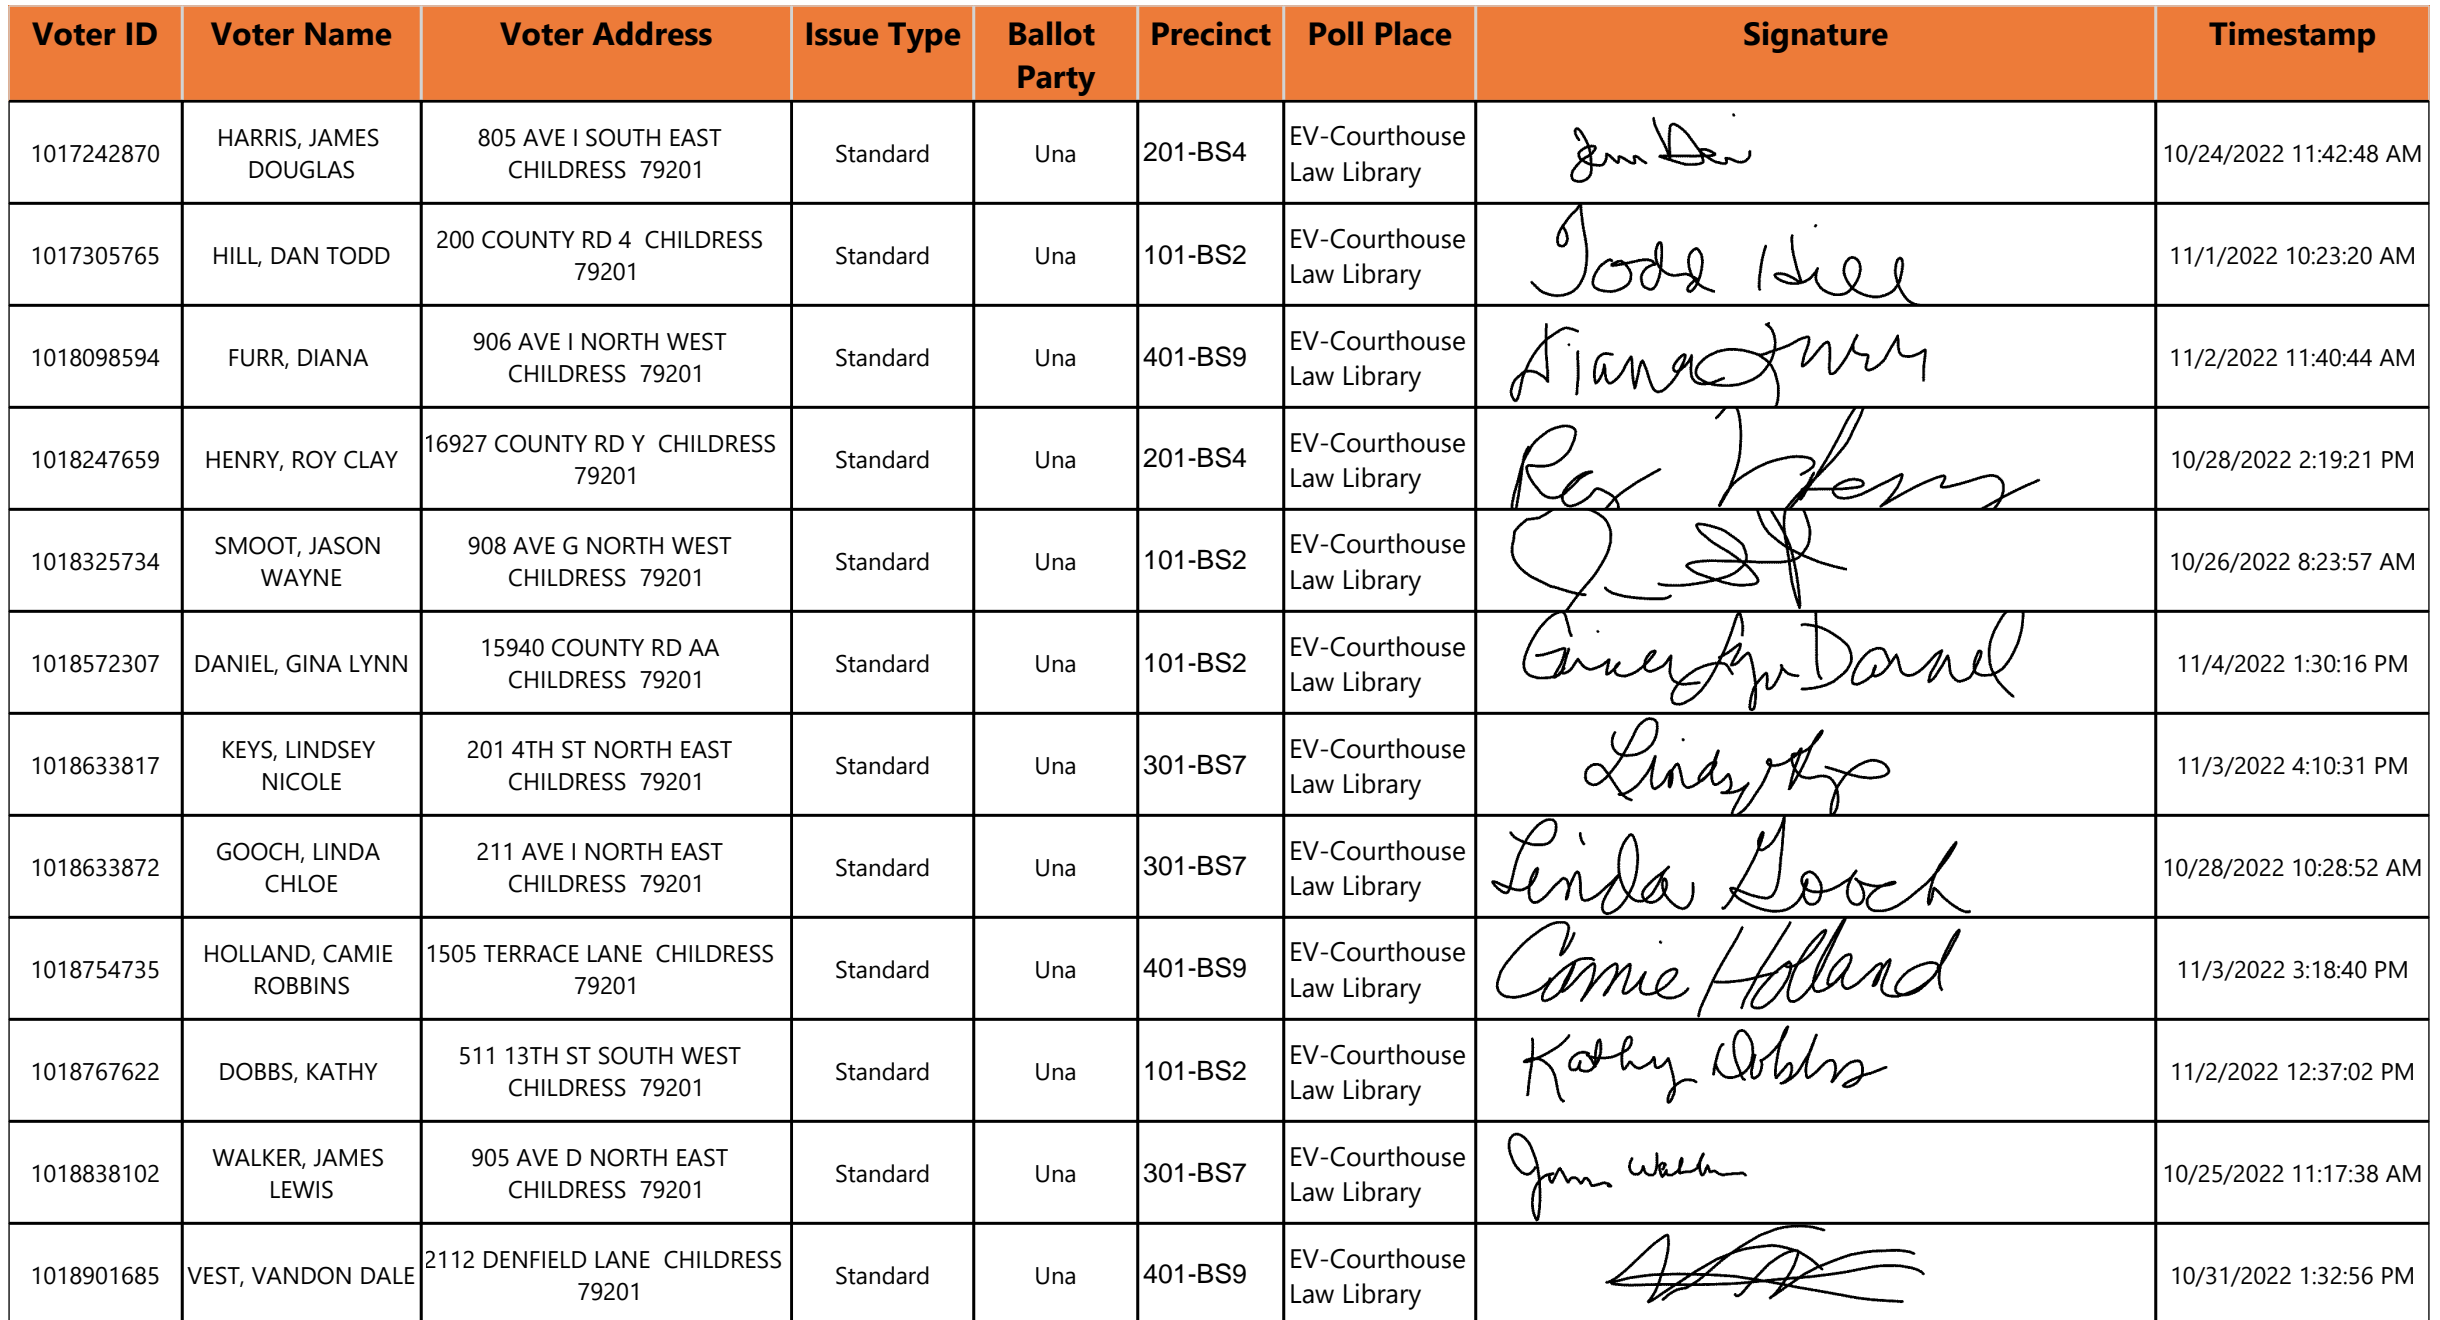 Voter ID Voter Name Voter Address Issue Type Ballot Party Precinct Poll Place Signature Timestamp
1017242870 HARRIS, JAMES DOUGLAS 805 AVE I SOUTH EAST CHILDRESS 79201 Standard Una 201-BS4 EV-Courthouse Law Library 10/24/2022 11:42:48 AM
1017305765 HILL, DAN TODD 200 COUNTY RD 4 CHILDRESS 79201 Standard Una 101-BS2 EV-Courthouse Law Library Todd Hill 11/1/2022 10:23:20 AM
1018098594 FURR, DIANA 906 AVE I NORTH WEST CHILDRESS 79201 Standard Una 401-BS9 EV-Courthouse Law Library Diana Furr 11/2/2022 11:40:44 AM
1018247659 HENRY, ROY CLAY 16927 COUNTY RD Y CHILDRESS 79201 Standard Una 201-BS4 EV-Courthouse Law Library Roy Henry 10/28/2022 2:19:21 PM
1018325734 SMOOT, JASON WAYNE 908 AVE G NORTH WEST CHILDRESS 79201 Standard Una 101-BS2 EV-Courthouse Law Library 10/26/2022 8:23:57 AM
1018572307 DANIEL, GINA LYNN 15940 COUNTY RD AA CHILDRESS 79201 Standard Una 101-BS2 EV-Courthouse Law Library Gina Lynn Daniel 11/4/2022 1:30:16 PM
1018633817 KEYS, LINDSEY NICOLE 201 4TH ST NORTH EAST CHILDRESS 79201 Standard Una 301-BS7 EV-Courthouse Law Library 11/3/2022 4:10:31 PM
1018633872 GOOCH, LINDA CHLOE 211 AVE I NORTH EAST CHILDRESS 79201 Standard Una 301-BS7 EV-Courthouse Law Library Linda Gooch 10/28/2022 10:28:52 AM
1018754735 HOLLAND, CAMIE ROBBINS 1505 TERRACE LANE CHILDRESS 79201 Standard Una 401-BS9 EV-Courthouse Law Library Camie Holland 11/3/2022 3:18:40 PM
1018767622 DOBBS, KATHY 511 13TH ST SOUTH WEST CHILDRESS 79201 Standard Una 101-BS2 EV-Courthouse Law Library Kathy Dobbs 11/2/2022 12:37:02 PM
1018838102 WALKER, JAMES LEWIS 905 AVE D NORTH EAST CHILDRESS 79201 Standard Una 301-BS7 EV-Courthouse Law Library James Walker 10/25/2022 11:17:38 AM
1018901685 VEST, VANDON DALE 2112 DENFIELD LANE CHILDRESS 79201 Standard Una 401-BS9 EV-Courthouse Law Library 10/31/2022 1:32:56 PM